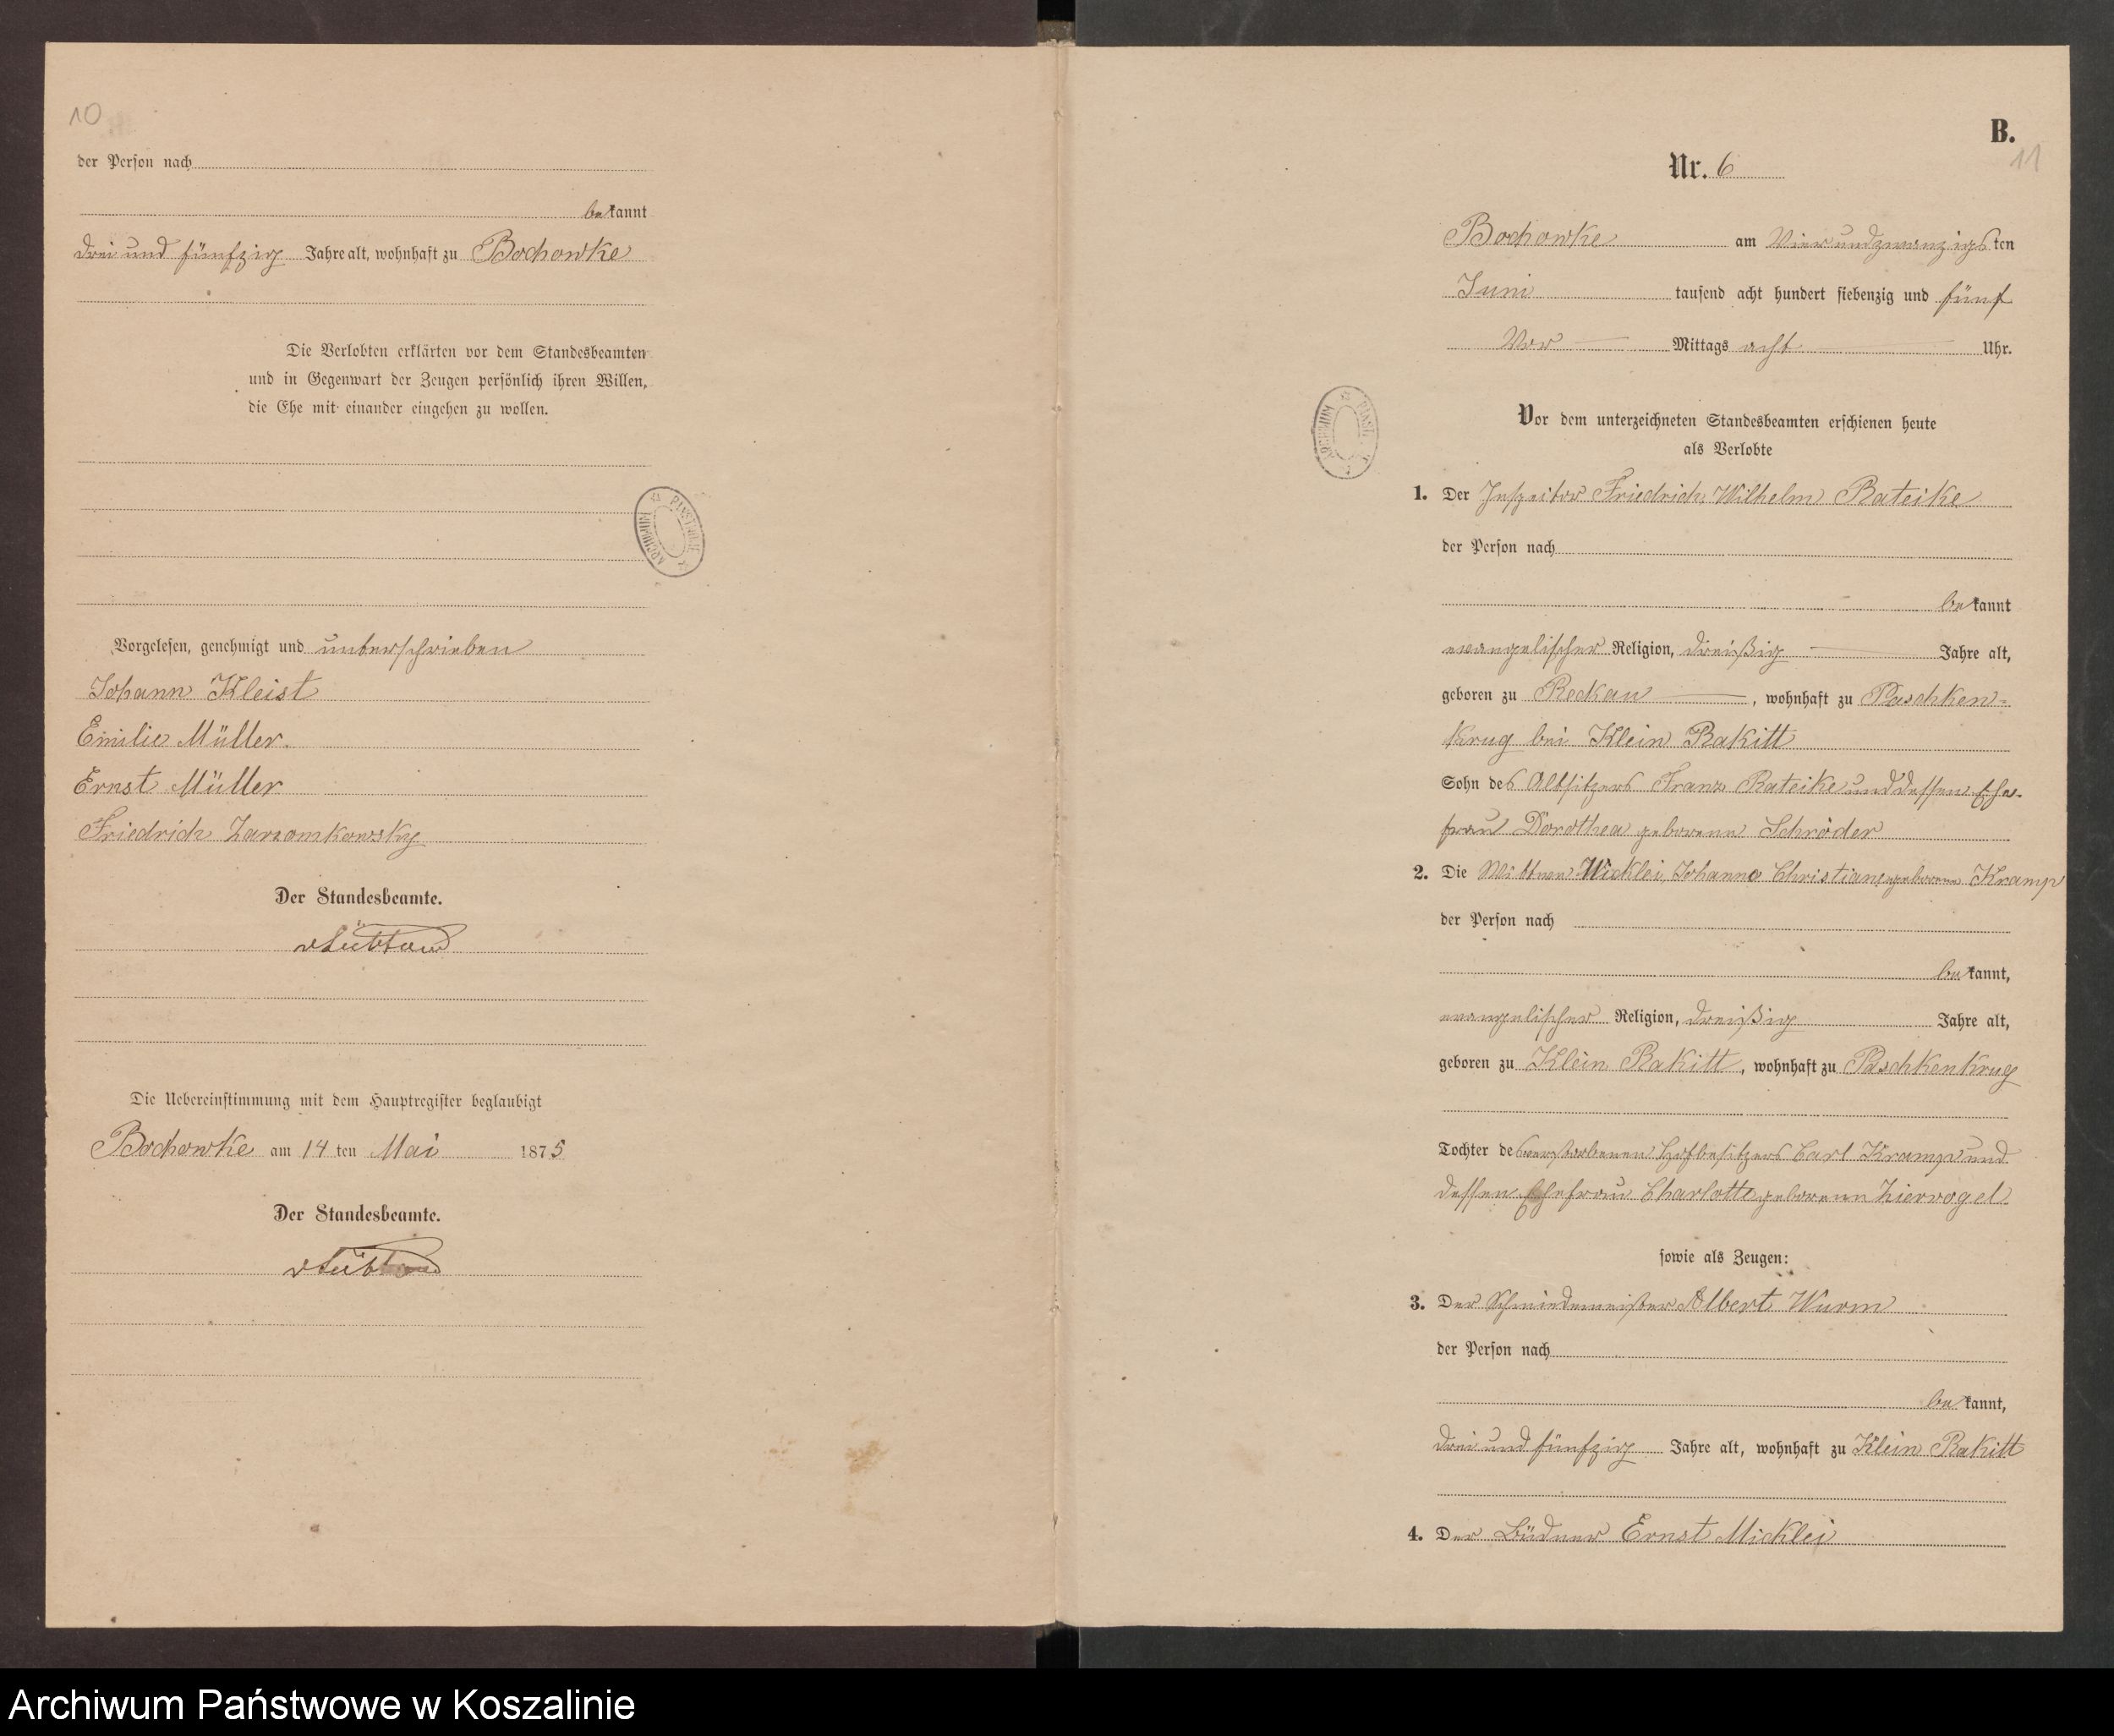 10
der Person nach
bekannt
drei und fünfzig Jahre alt, wohnhaft zu Bochowke
Die Verlobten erklärten vor dem Standesbeamten
und in Gegenwart der Zeugen persönlich ihren Willen,
die Ehe mit einander eingehen zu wollen.
ARCHIWUM PAŃSTWOWE
Vorgelesen, genehmigt und unterschrieben
Johann Kleist
Emilie Müller.
Ernst Müller
Friedrich Zarzomkowsky
Der Standesbeamte.
Die Uebereinstimmung mit dem Hauptregister beglaubigt
Bochowke am 14 ten Mai 1875
Der Standesbeamte.
B.
11
Nr. 6
Bochowke am Vierundzwanzigsten
Juni tausend acht hundert siebenzig und fünf
Vor Mittags acht Uhr.
Vor dem unterzeichneten Standesbeamten erschienen heute
als Verlobte
1. Der Inspektor Friedrich Wilhelm Rateike
der Person nach
bekannt
evangelischer Religion, dreißig Jahre alt,
geboren zu Reckau, wohnhaft zu Paschken-
krug bei Klein Rakitt
Sohn des Altsitzers Franz Rateike und dessen Ehe-
frau Dorothea geborene Schröder
2. Die Wittwe Micklei, Johanna Christiane geborene Kramp
der Person nach
bekannt,
evangelischer Religion, dreißig Jahre alt,
geboren zu Klein Rakitt, wohnhaft zu Paschkenkrug
Tochter des verstorbenen Hofbesitzers Carl Kramp und
dessen Ehefrau Charlotte geborene Ziervogel
sowie als Zeugen:
3. Der Schmiedemeister Albert Wurm
der Person nach
bekannt,
drei und fünfzig Jahre alt, wohnhaft zu Klein Rakitt
4. Der Büdner Ernst Micklei
Archiwum Państwowe w Koszalinie